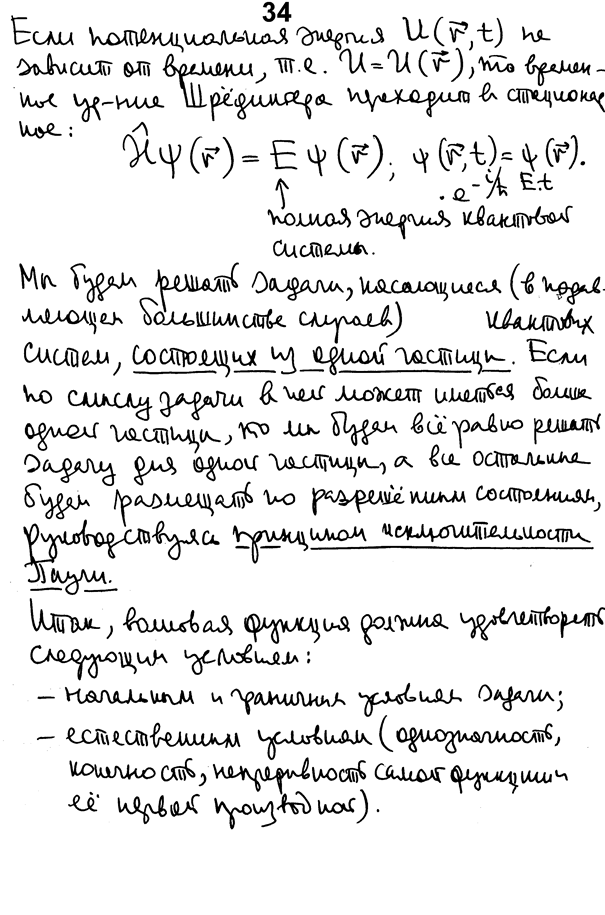 34
Если потенциальная энергия U(r⃗,t) не
зависит от времени, т.е. U=U(r⃗), то времен-
ное ур-ние Шрёдингера преходит в стационар
ное:
Ĥψ(r⃗) = Eψ(r⃗); ψ(r⃗,t)=ψ(r⃗).
↑ · e^{-i/ħ E·t}
полная энергия квантовой
системы.
Мы будем решать задачи, касающиеся (в подав-
ляющем большинстве случаев) квантовых
систем, состоящих из одной частицы. Если
по смыслу задачи в ней может иметься более
одной частицы, то мы будем всё равно решать
задачу для одной частицы, а все остальные
будем размещать по разрешённым состояниям,
руководствуясь принципом исключительности
Паули.
Итак, волновая функция должна удовлетворять
следующим условиям:
– начальным и граничным условиям задачи;
– естественным условиям (однозначность,
конечность, непрерывность самой функции и
её первой производной).